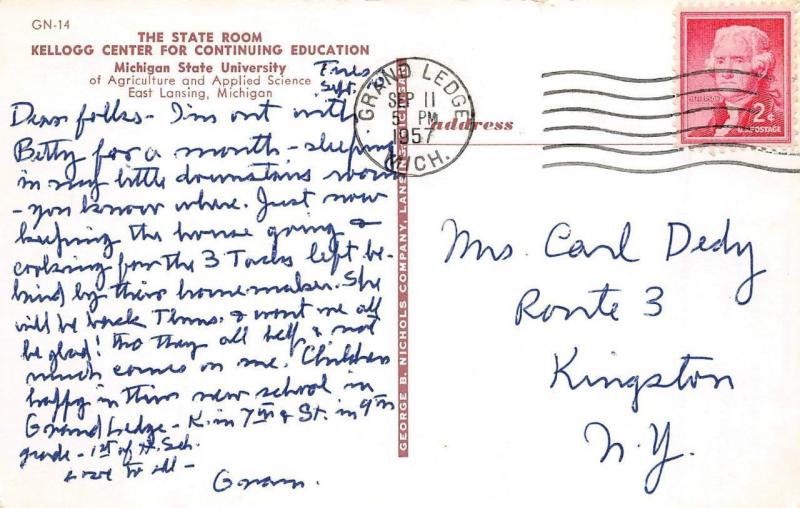 GN-14
THE STATE ROOM
KELLOGG CENTER FOR CONTINUING EDUCATION
Michigan State University
of Agriculture and Applied Science
East Lansing, Michigan
Tues
Sept. 10
Dear folks - I'm out with
Betty for a month - sleeping
in my little downstairs room
- you know where. Just now
keeping the house going &
cooking for the 3 left be-
hind by their homemaker. She
will be back Thurs. & won't we all
be glad! tho they all help & not
much comes on me. Children
happy in their new school in
Grand Ledge - K. in 7th & St. in 9th
grade - 1st of H. Sch.
Love to all -
Gram.
GEORGE B. NICHOLS COMPANY, LANSING, MICHIGAN
address
GRAND LEDGE
SEP 11
5 PM
1957
MICH.
JEFFERSON
2¢
U.S. POSTAGE
Mrs. Carl Dedy
Route 3
Kingston
N.Y.